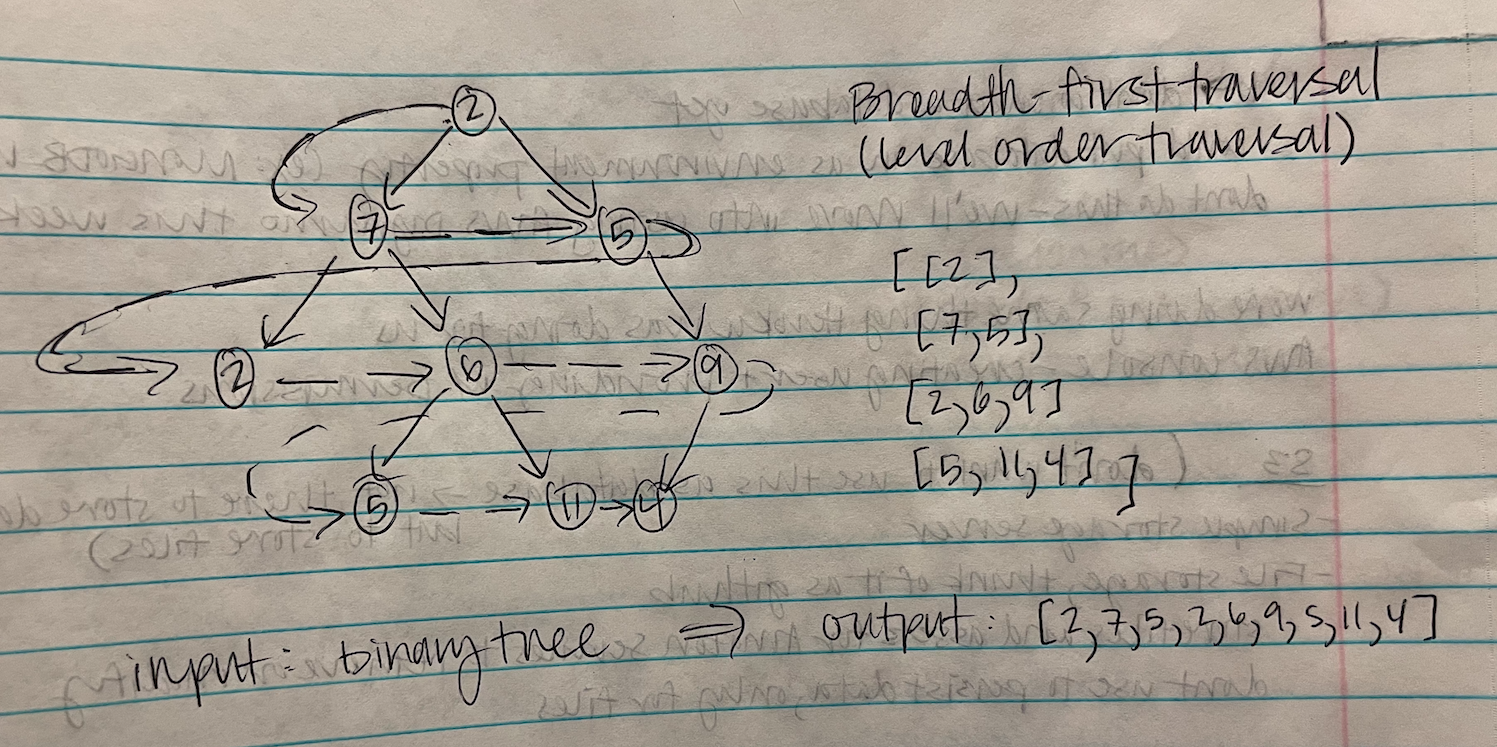 2
Breadth-first traversal
(level order traversal)
7 5
[[2],
[7,5],
2 6 9
[2,6,9]
5 11 4
[5,11,4]]
input: binary tree => output: [2,7,5,2,6,9,5,11,4]